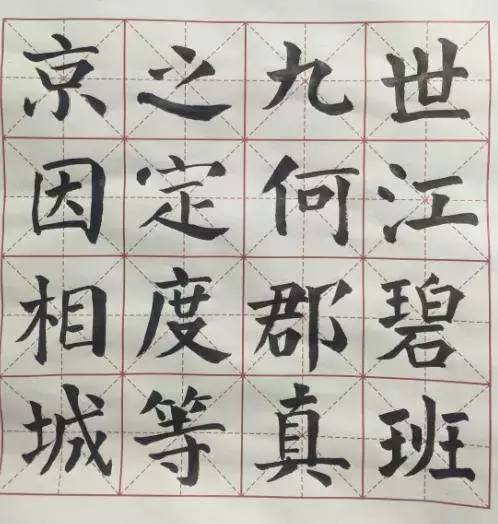 世江碧班
九何郡真
之定度等
京因相城